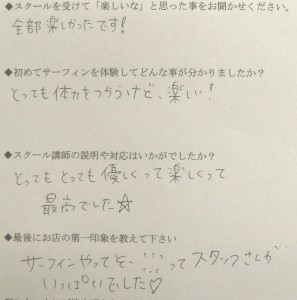 ◆スクールを受けて「楽しいな」と思った事をお聞かせください。
全部楽しかったです!
◆初めてサーフィンを体験してどんな事が分かりましたか?
とっても体力をつかうけど、楽しい!
◆スクール講師の説明や対応はいかがでしたか?
とっても とっても 優しくって 楽しくって
最高でした☆
◆最後にお店の第一印象を教えて下さい
サーフィンやってそ、、、って スタッフさんが
いっぱいでした♡